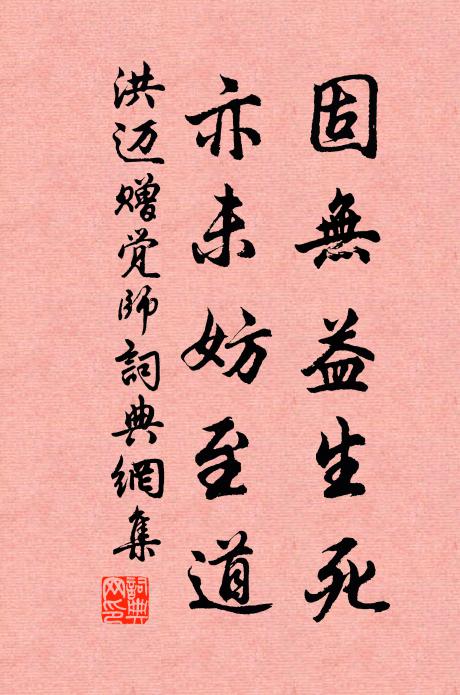 固無益生死
亦未妨至道
洪迈赠觉师詞典網集
詞典网印